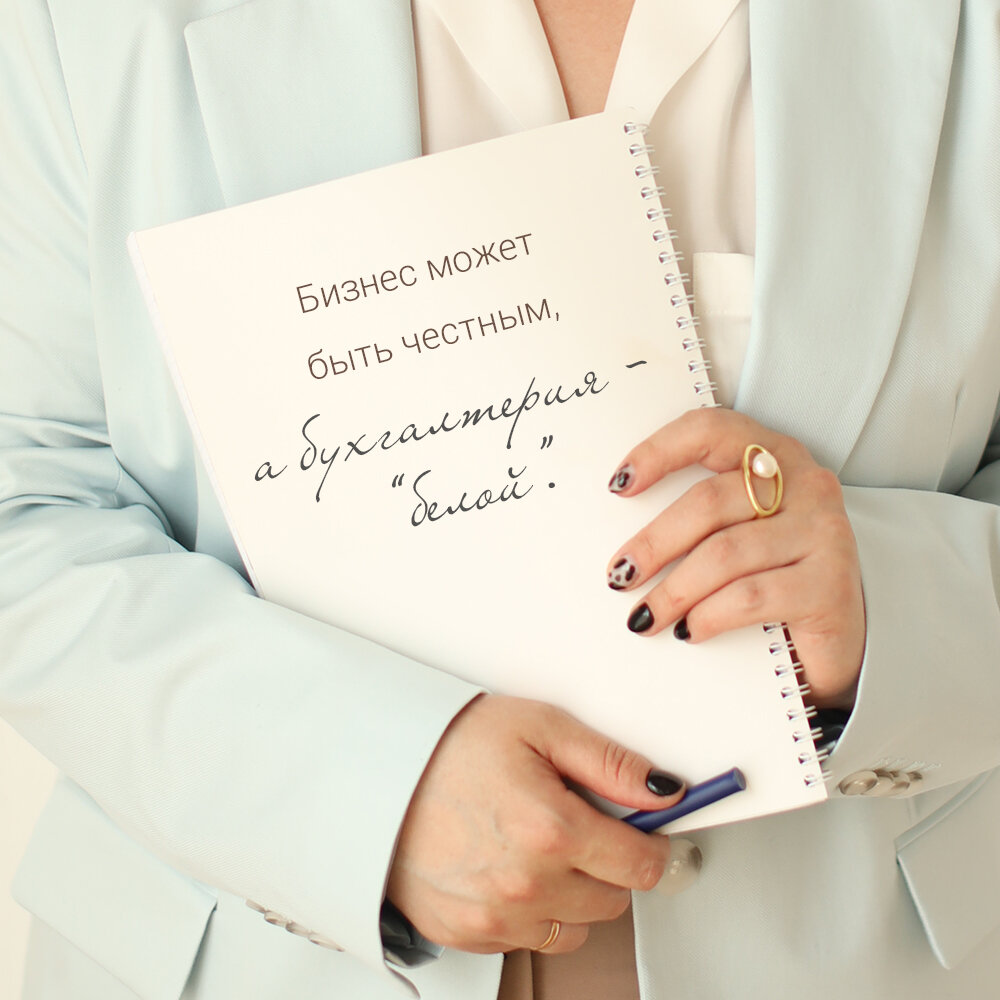 Бизнес может
быть честным,
а бухгалтерия –
“белой”.